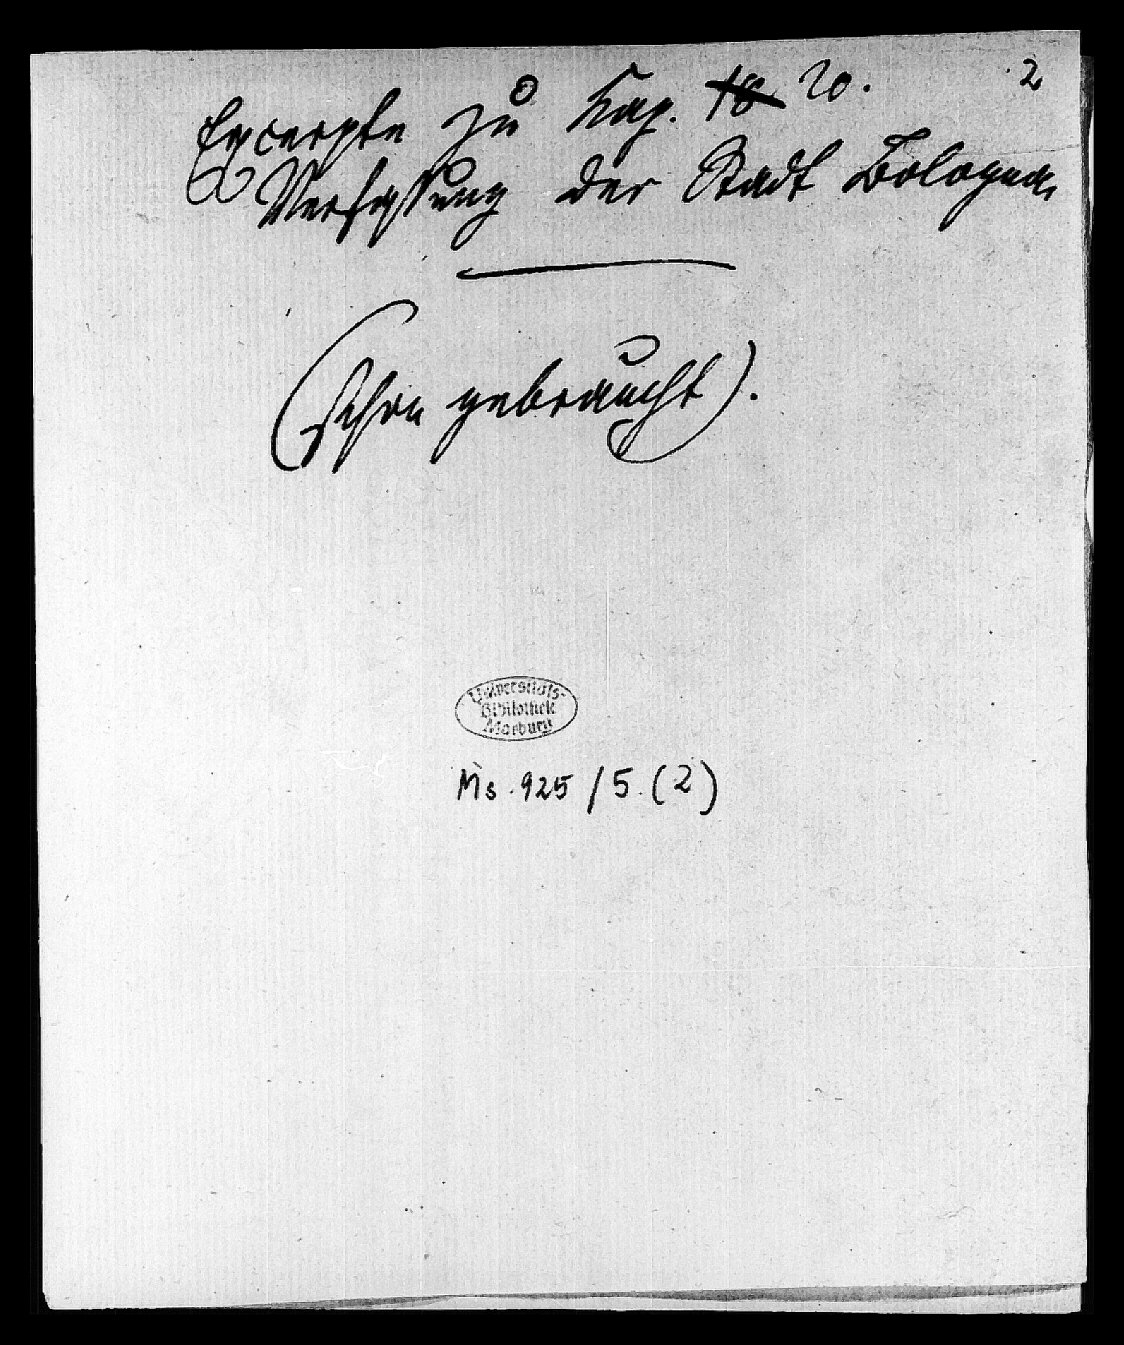 2
Excerpte zu Kap. 18 20.
Verfassung der Stadt Bologna
(schon gebraucht).
Universitäts-
Bibliothek
Marburg
Ms. 925 / 5 (2)